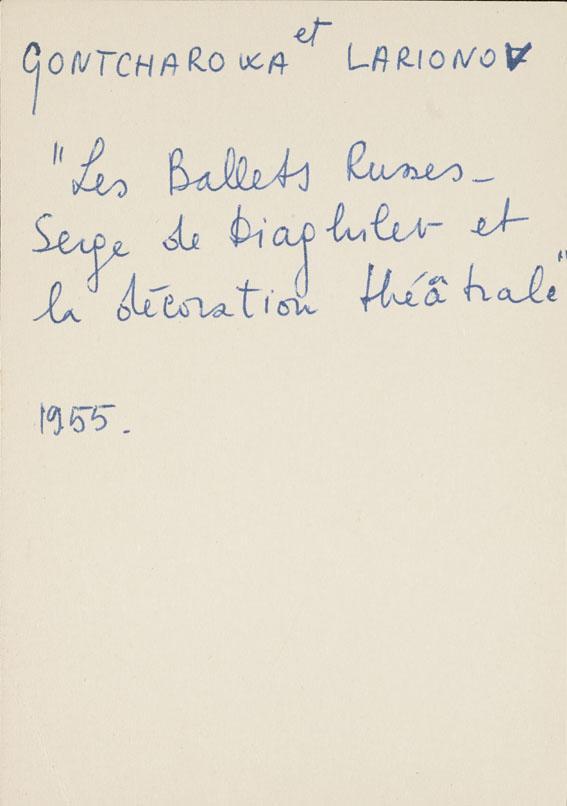 GONTCHAROVA et LARIONOV
"Les Ballets Russes_
Serge de Diaghilev et
la décoration théâtrale"
1955.